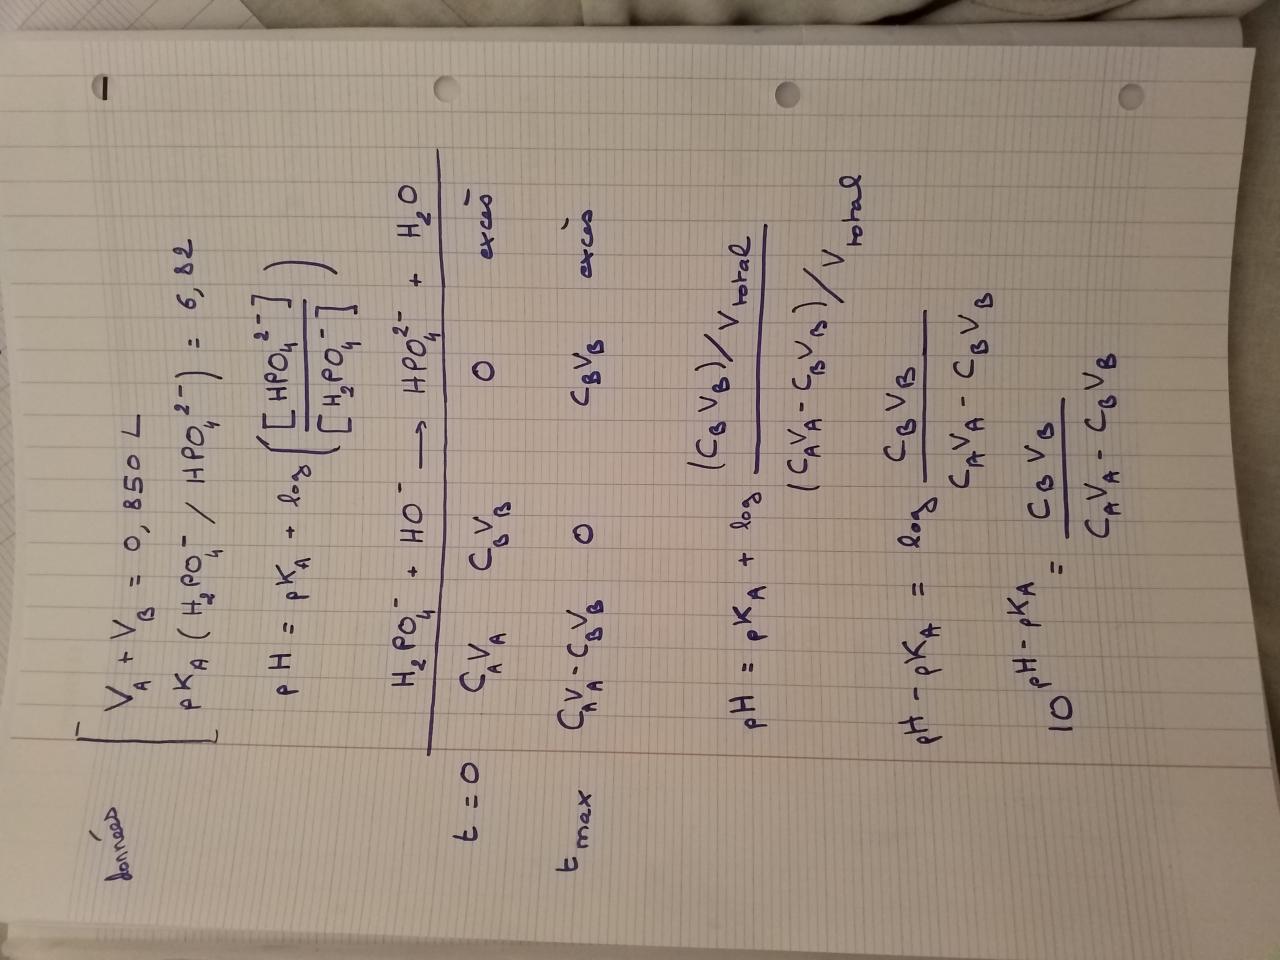 données
V_A + V_B = 0,850 L
pK_A (H₂PO₄⁻ / HPO₄²⁻) = 6,82
pH = pK_A + log ( [HPO₄²⁻] / [H₂PO₄⁻] )
H₂PO₄⁻ + HO⁻ → HPO₄²⁻ + H₂O
t = 0 C_A V_A C_B V_B 0 excès
t_max C_A V_A - C_B V_B 0 C_B V_B excès
pH = pK_A + log (C_B V_B) / V_total / (C_A V_A - C_B V_B) / V_total
pH - pK_A = log C_B V_B / C_A V_A - C_B V_B
10^(pH - pK_A) = C_B V_B / C_A V_A - C_B V_B